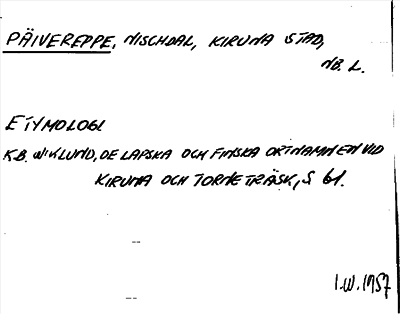 PÄIVEREPPE, NISCHDAL, KIRUNA STAD,
NB. L.
ETYMOLOGI
K.B. WIKLUND, DE LAPSKA OCH FINSKA ORTNAMNEN VID
KIRUNA OCH TORNETRÄSK, S 61.
I.W. 1957